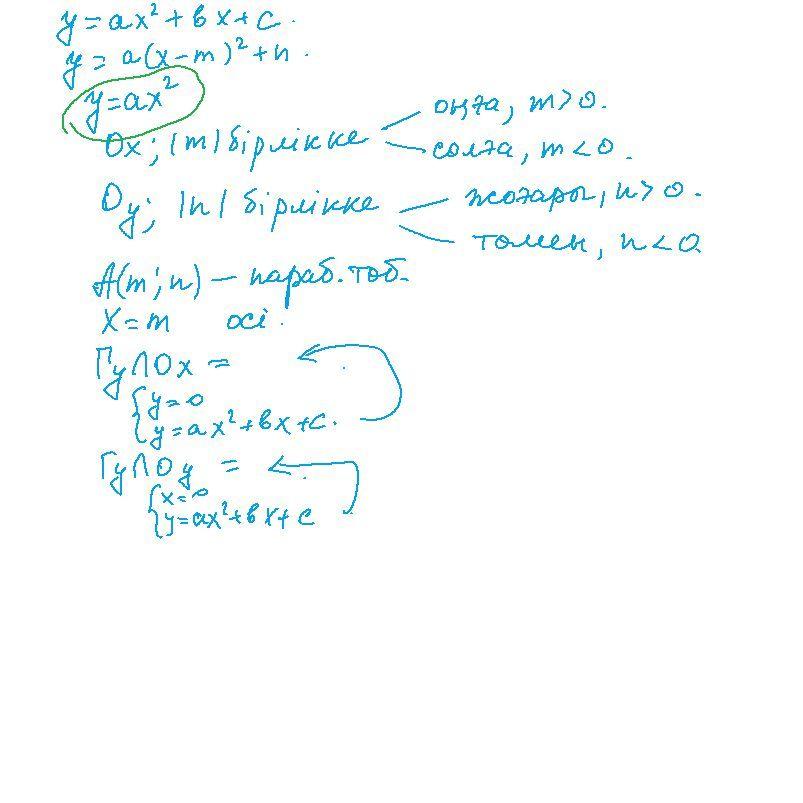 y = ax² + вx + c.
y = a(x-m)² + n.
y=ax²
Ox; |m| бірлікке
оңға, m>0.
солға, m<0.
Oy; |n| бірлікке
жоғары, n>0.
төмен, n<0.
A(m; n) — параб. төб.
X=m осі.
Гy∩Ox =
{y=0
y=ax²+вx+c.
Гy∩Oy =
{x=0
y=ax²+вx+c